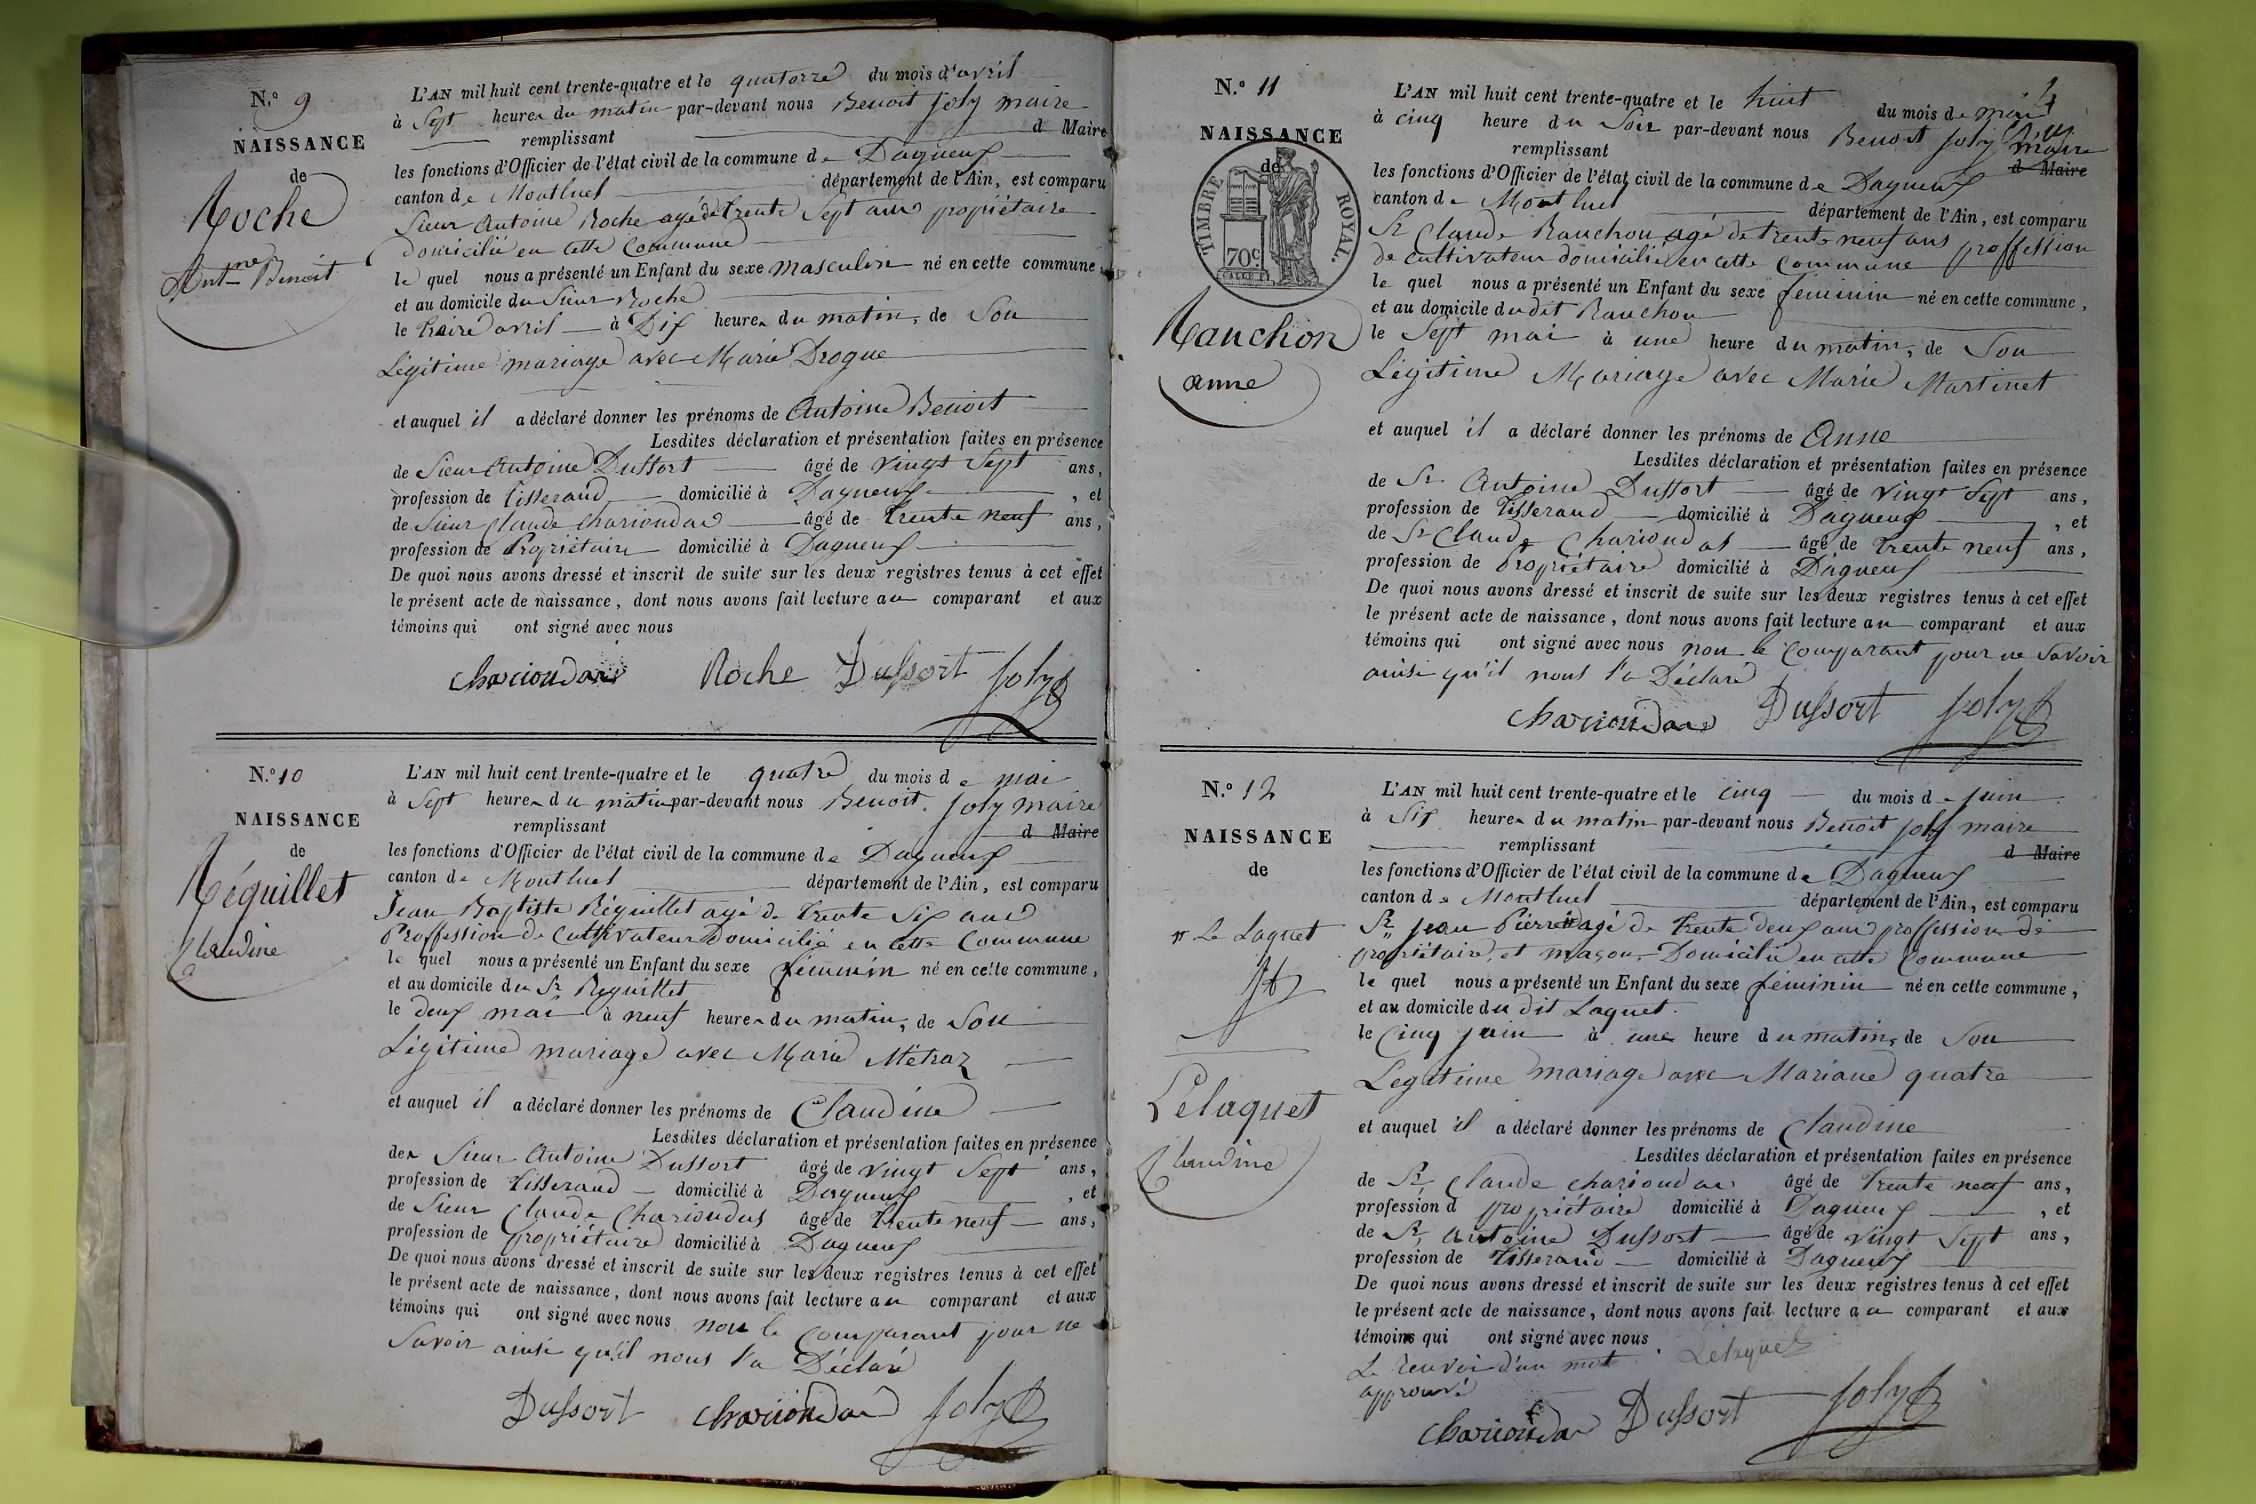 N.º 9
NAISSANCE
de
Roche
Ant.ne Benoit
L'AN mil huit cent trente-quatre et le quatorze du mois d'avril
à Sept heures du matin par-devant nous Benoit Joly maire
remplissant d Maire
les fonctions d'Officier de l'état civil de la commune de Dagneux
canton de Montluel département de l'Ain, est comparu
Sieur Antoine Roche agé de trente Sept ans propriétaire
domicilié en cette Commune
le quel nous a présenté un Enfant du sexe masculin né en cette commune,
et au domicile du Sieur Roche
le treize avril à Dix heures du matin, de Son
Légitime mariage avec Marie Drogue
et auquel il a déclaré donner les prénoms de Antoine Benoit
Lesdites déclaration et présentation faites en présence
de Sieur Antoine Dussort âgé de vingt Sept ans,
profession de Tisserand domicilié à Dagneux, et
de Sieur Claude Chariondas âgé de trente neuf ans,
profession de Propriétaire domicilié à Dagneux
De quoi nous avons dressé et inscrit de suite sur les deux registres tenus à cet effet
le présent acte de naissance, dont nous avons fait lecture au comparant et aux
témoins qui ont signé avec nous
Roche Dussort Joly
N.º 10
NAISSANCE
de
Réquillet
Claudine
L'AN mil huit cent trente-quatre et le quatre du mois de mai
à Sept heures du matin par-devant nous Benoit Joly maire
remplissant d Maire
les fonctions d'Officier de l'état civil de la commune de Dagneux
canton de Montluel département de l'Ain, est comparu
Jean Baptiste Réquillet agé de trente Six ans
Proffession de Cultivateur Domicilié en cette Commune
le quel nous a présenté un Enfant du sexe féminin né en cette commune,
et au domicile du Sr Requillet
le deux mai à neuf heures du matin, de Son
Légitime mariage avec Marie Métraz
et auquel il a déclaré donner les prénoms de Claudine
Lesdites déclaration et présentation faites en présence
des Sieur Antoine Dussort âgé de vingt Sept ans,
profession de Tisserand domicilié à Dagneux, et
de Sieur Claude Chariondas âgé de trente neuf ans,
profession de propriétaire domicilié à Dagneux
De quoi nous avons dressé et inscrit de suite sur les deux registres tenus à cet effet
le présent acte de naissance, dont nous avons fait lecture au comparant et aux
témoins qui ont signé avec nous non le Comparant pour ne
Savoir ainsi qu'il nous l'a Déclaré
Dussort Joly
4
N.º 11
NAISSANCE
de
TIMBRE ROYAL.
70c
Rauchon
anne
L'AN mil huit cent trente-quatre et le huit du mois de mai
à cinq heure du Soir par-devant nous Benoit Joly maire
remplissant d Maire
les fonctions d'Officier de l'état civil de la commune de Dagneux
canton de Montluel département de l'Ain, est comparu
Sr Claude Rauchon agé de trente neuf ans proffession
de cultivateur domicilié en cette Commune
le quel nous a présenté un Enfant du sexe féminin né en cette commune,
et au domicile du dit Rauchon
le Sept mai à une heure du matin, de Son
Légitime Mariage avec Marie Martinet
et auquel il a déclaré donner les prénoms de Anne
Lesdites déclaration et présentation faites en présence
de Sr Antoine Dussort âgé de vingt Sept ans,
profession de Tisserand domicilié à Dagneux, et
de Sr Claude Chariondas âgé de trente neuf ans,
profession de propriétaire domicilié à Dagneux
De quoi nous avons dressé et inscrit de suite sur les deux registres tenus à cet effet
le présent acte de naissance, dont nous avons fait lecture au comparant et aux
témoins qui ont signé avec nous non le Comparant pour ne Savoir
ainsi qu'il nous l'a Déclaré
Dussort Joly
N.º 12
NAISSANCE
de
" Le Laquet
Lelaquet
Claudine
L'AN mil huit cent trente-quatre et le cinq du mois de juin
à Six heures du matin par-devant nous Benoit Joly maire
remplissant d Maire
les fonctions d'Officier de l'état civil de la commune de Dagneux
canton de Montluel département de l'Ain, est comparu
Sr jean Pierre " agé de trente deux ans proffession de
propriétaire, et maçon, Domicilié en cette Commune
le quel nous a présenté un Enfant du sexe féminin né en cette commune,
et au domicile du dit Laquet.
le Cinq juin à une heure du matin, de Son
Legitime mariage avec Mariane quatre
et auquel il a déclaré donner les prénoms de Claudine
Lesdites déclaration et présentation faites en présence
de Sr Claude Chariondas âgé de trente neuf ans,
profession d propriétaire domicilié à Dagneux, et
de Sr antoine Dussort âgé de vingt Sept ans,
profession de Tisserand domicilié à Dagneux
De quoi nous avons dressé et inscrit de suite sur les deux registres tenus à cet effet
le présent acte de naissance, dont nous avons fait lecture au comparant et aux
témoins qui ont signé avec nous.
Le renvoi d'un mot Lelaquet
approuvé
Dussort Joly